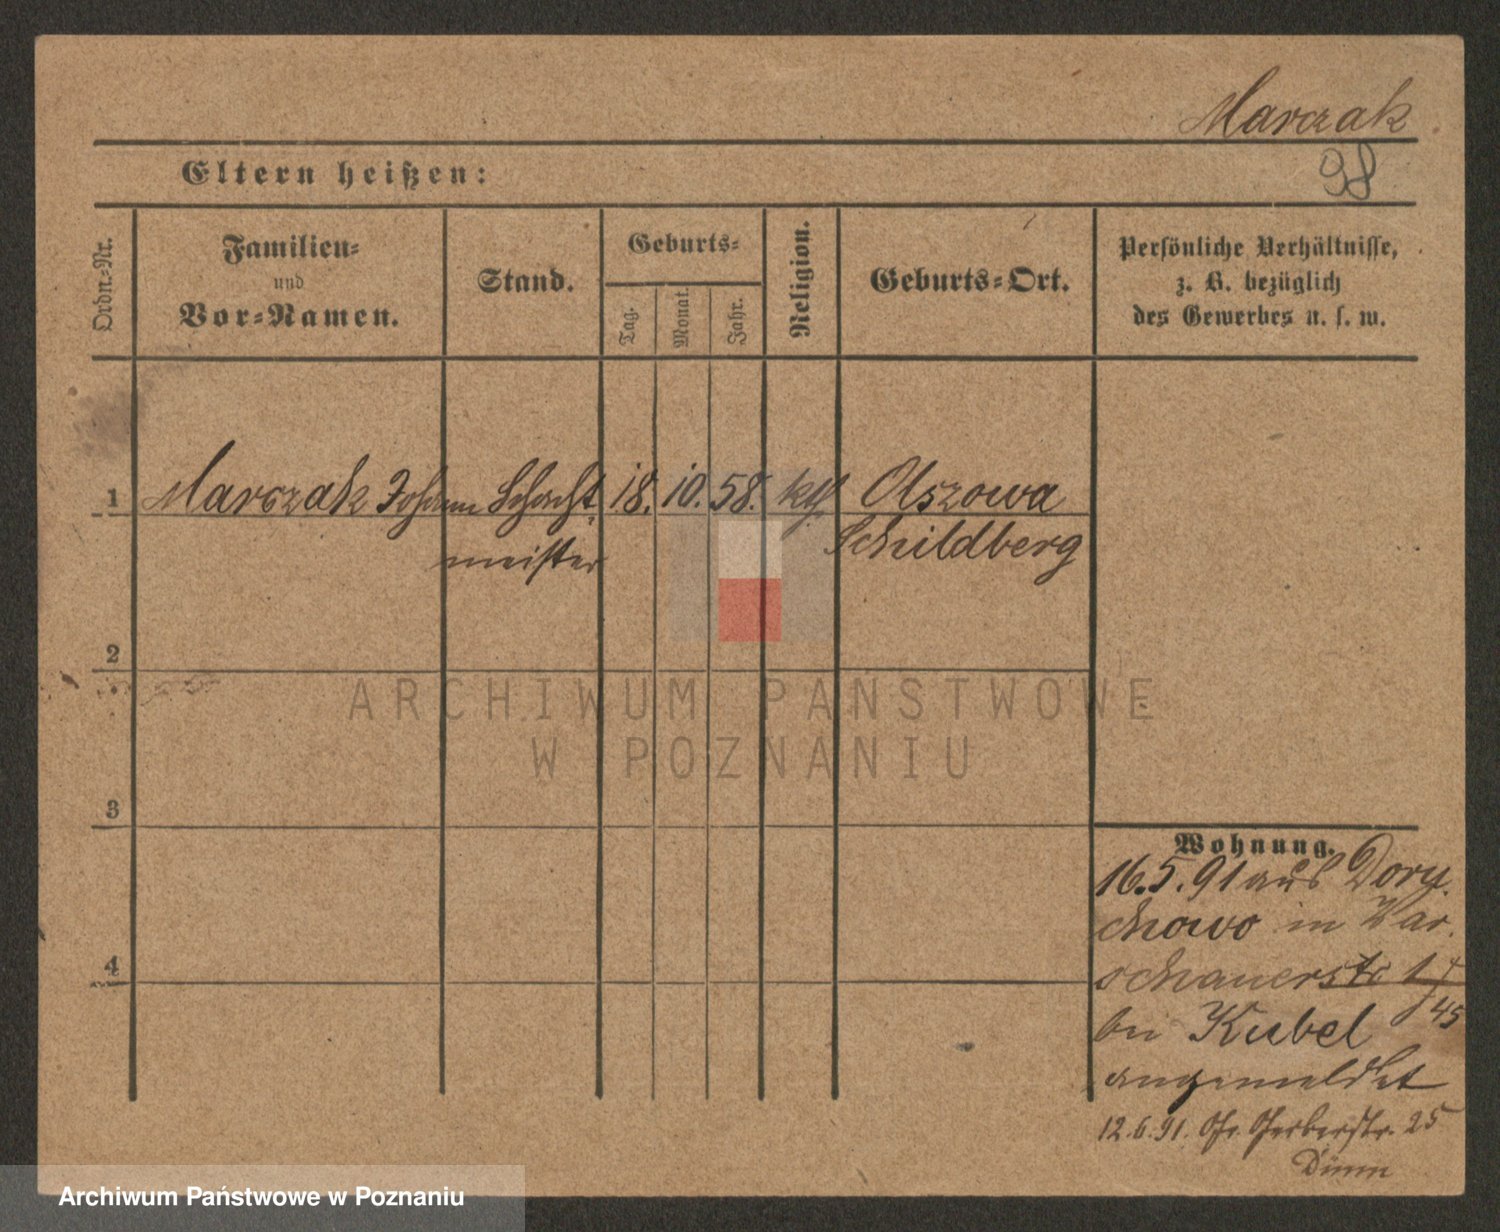 Marczak
Eltern heißen:
98
Ordn.-Nr.
Familien-
und
Vor-Namen.
Stand.
Geburts-
Tag.
Monat.
Jahr.
Religion.
Geburts-Ort.
Persönliche Verhältnisse,
z. B. bezüglich
des Gewerbes u. s. w.
1 Marczak Johann Schacht 18. 10. 58. kth Olszowa
meister Schildberg
2
3
4
Wohnung.
16.5.91 aus Dory
chowo in War
schauerstr
45
bei Kubel
angemeldet
12.6.91. Gr. Gerberstr. 25
ARCHIWUM PAŃSTWOWE
W POZNANIU
Archiwum Państwowe w Poznaniu